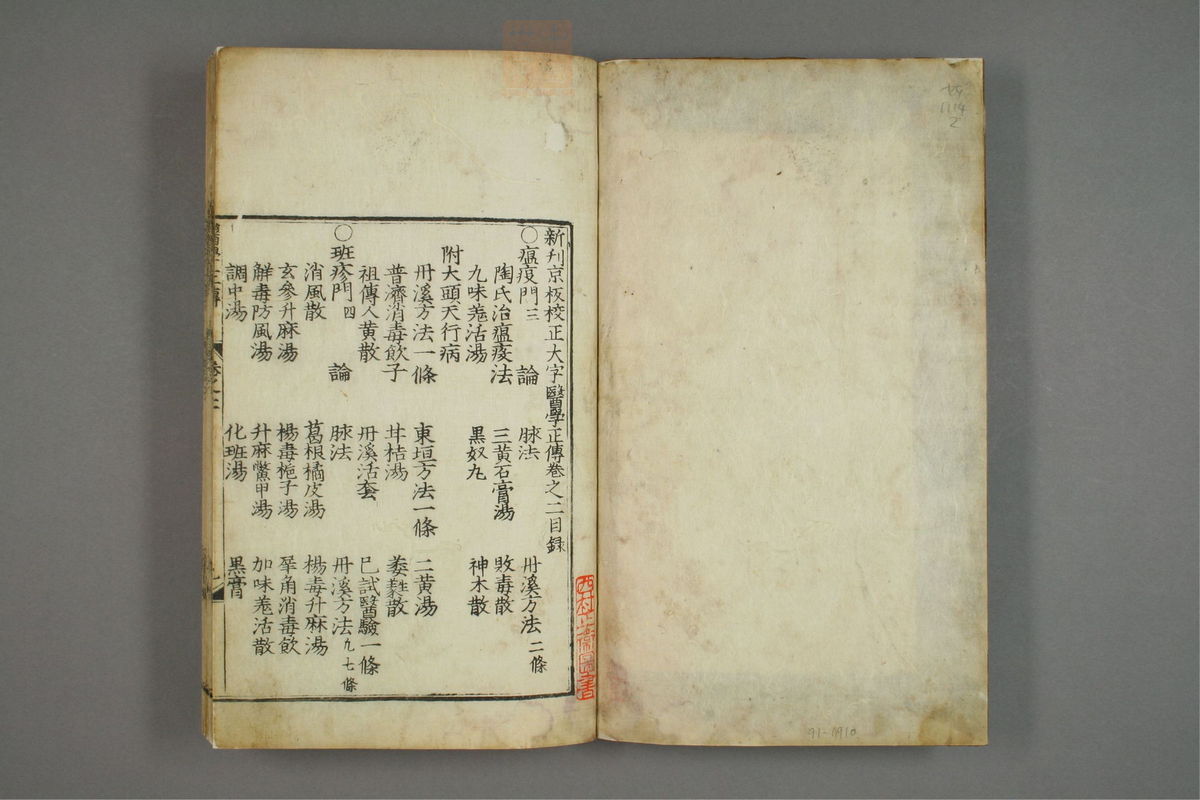 新刋京板校正大字醫學正傳卷之二目録
○瘟疫門三 論 脉法 丹溪方法 二條
陶氏治瘟疫法 三黄石膏湯 敗毒散
九味羗活湯 黒奴丸 神木散
附大頭天行病
丹溪方法一條 東垣方法一條 二黄湯
普濟消毒飲子 甘桔湯 萎蕤散
祖傳人黄散 丹溪活套 已試醫驗一條
○班疹門四 論 脉法 丹溪方法九七條
消風散 葛根橘皮湯 楊毒升麻湯
玄參升麻湯 楊毒梔子湯 犀角消毒飲
解毒防風湯 升麻鱉甲湯 加味羗活散
調中湯 化班湯 黒膏
91-1910